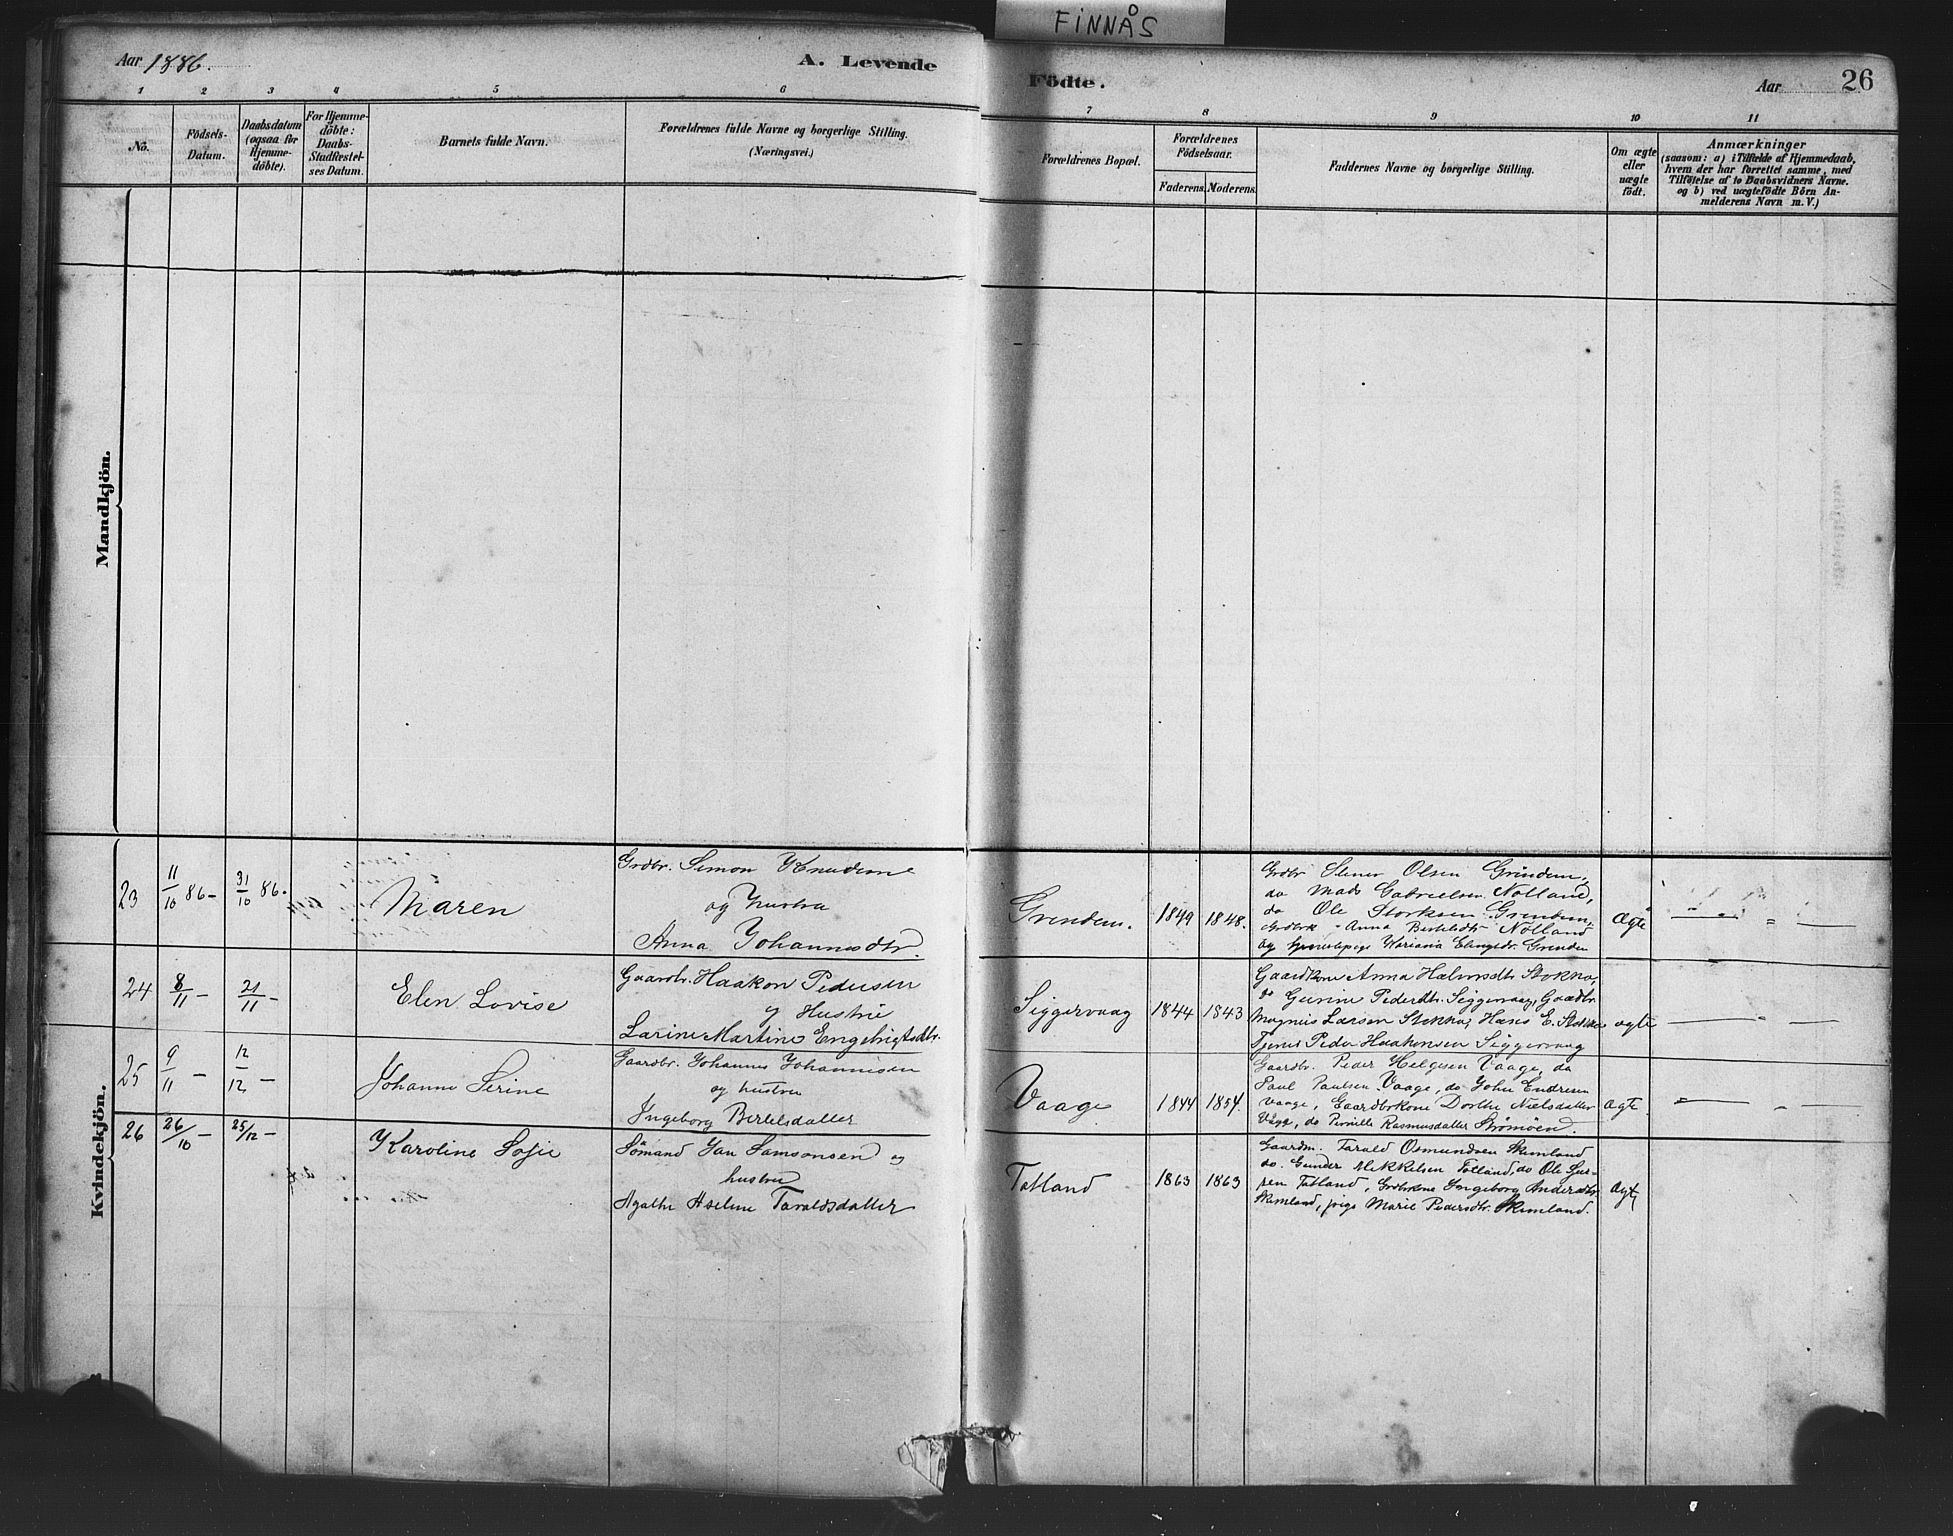 FINNÅS
Aar 1886.
A. Levende
Födte.
Aar
26
1 2 3 4 5 6 7 8 9 10 11
No.
Födsels-
Datum.
Daabsdatum
(ogsaa for
Hjemme-
döbte).
For Hjemme-
döbte:
Daabs-
Stadfæstel-
ses Datum.
Barnets fulde Navn.
Forældrenes fulde Navne og borgerlige Stilling.
(Næringsvei.)
Forældrenes Bopæl.
Forældrenes
Födselsaar.
Faderens.
Moderens.
Faddernes Navne og borgerlige Stilling.
Om ægte
eller
uægte
födt.
Anmærkninger
(saasom: a) i Tilfælde af Hjemmedaab,
hvem der har forrettet samme, med
Tilföielse af to Daabsvidners Navne.
og b) ved uægtefödte Börn An-
melderens Navn m. V.)
Mandkjön.
Kvindekjön.
23
11/10 86 -
31/10 86.
Maren
Grdbr. Simon Knudsene
og hustru
Anna Johannesdtr.
Grindem.
1849
1848.
Grdbr Stener Olsen Grindem,
do Mads Gabrielsen Nolland,
do Ole Storksen Grindem,
Anna Bertelsdtr Nolland
og Mariana Elingsdr. Grinden
Ægte
24
8/11 -
21/11 -
Elen Lovise
Gaardbr. Haakon Pedersen
og Hustru
Larine Martine Engebrigtsdtr.
Siggervaag
1844
1843
Gaardkone Anna Halvorsdtr Stokka,
do Gurine Pedersdtr. Siggervaag, Gaardbr.
Magnus Larsen Stokka, Hans E. Stokka
Tjener Peder Haakonsen Siggervaag
ægte
25
9/11 -
12/12 -
Johanne Serine
Gaardbr. Johannes Johannesen
og hustru
Ingeborg Bertelsdatter
Vaage
1844
1854.
Gaardbr. Peder Helgesen Vaage, do
Paul Paulsen Vaage, do John Endresen
Vaage, Gaardbrkone Dorthe Nielsdatter
Våge, do Pernille Rasmusdatter Strömöen.
Ægte
26
26/10 -
25/12 -
Karoline Sofie
Sömand Jan Samsonsen og
hustru
Agathe Aseline Taraldsdatter
Totland
1863
1863
Gaardm. Tarald Osmundsen Skimland
do. Gunder Mikkelsen Totland, do Ole Sjur-
sen Totland, Grdbrkone Ingeborg Andersdtr
Skimland, pige Marie Pedersdtr. Skimland.
Ægte